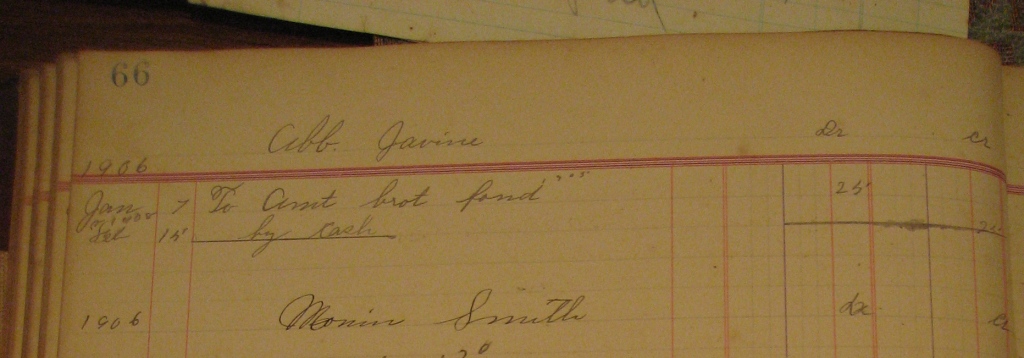 66
Abb. Javine Dr Cr
1906
Jan 7 To Amt brot fond 205 25
Feb 15 by Cash
1906 Monin Smith Dr Cr